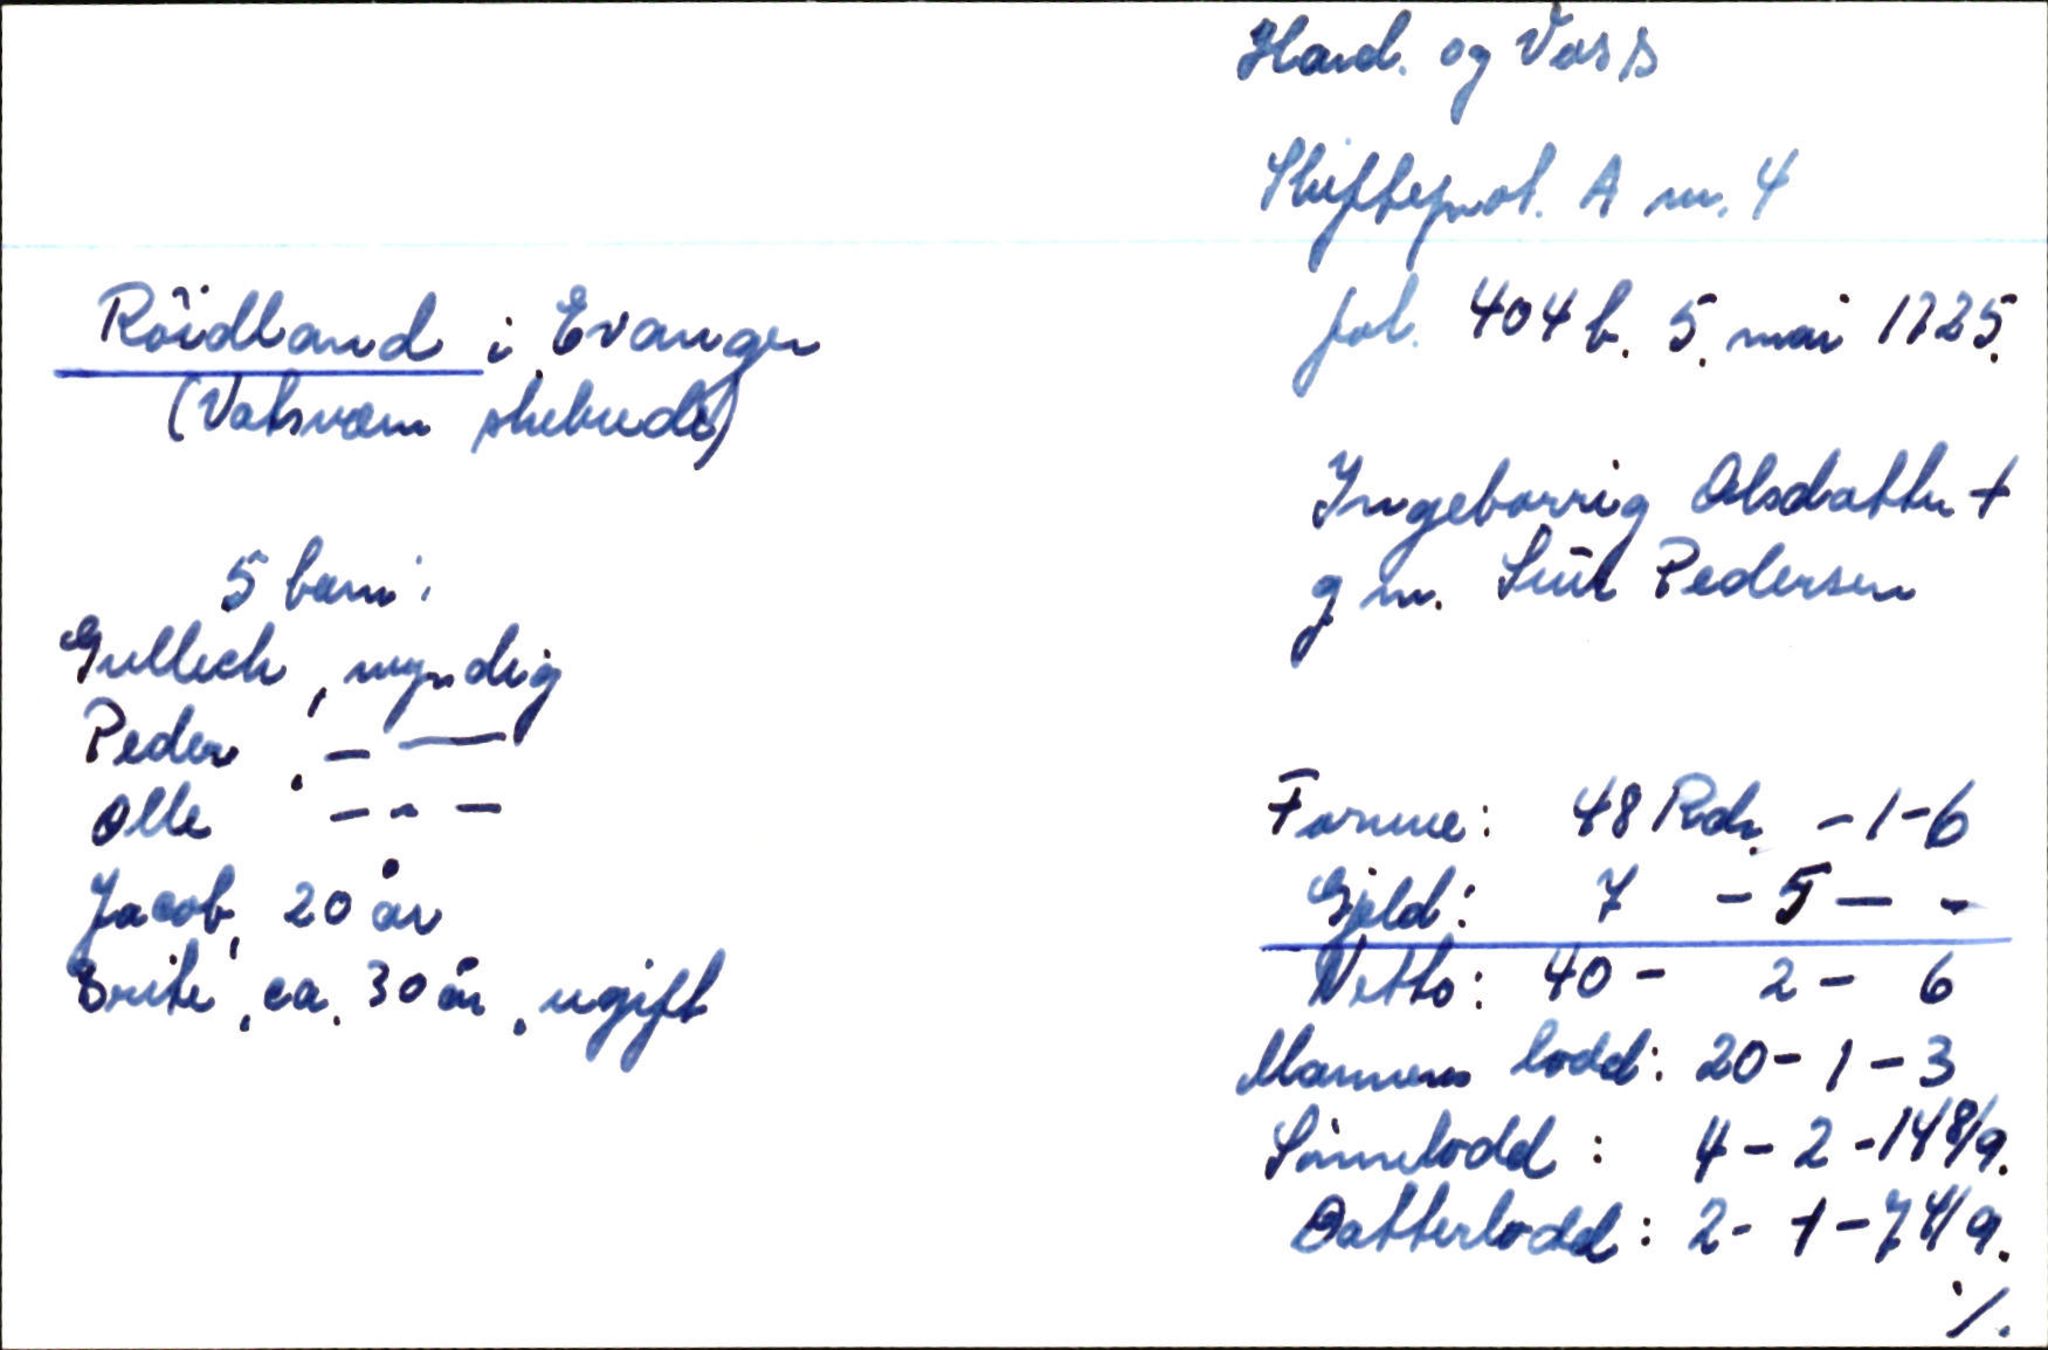 Hard. og Voss
Skifteprot. A nr. 4
fol. 404 b. 5. mai 1725.
Röidland i Evanger
(Vatsvøren skibrede)
Ingeborrig Olsdatter +
g m. Siur Pedersen
5 barn:
Gullich, myndig
Peder, - —
Olle - - -
Jacob, 20 år
Brite, ca. 30 år, ugift
Formue: 48 Rdr. - 1 - 6
Gjeld: 7 - 5 — -
Netto: 40 - 2 - 6
Mannens lodd: 20 - 1 - 3
Sönnelodd: 4 - 2 - 14 8/9.
Datterlodd: 2 - 1 - 7 4/9.
·/.